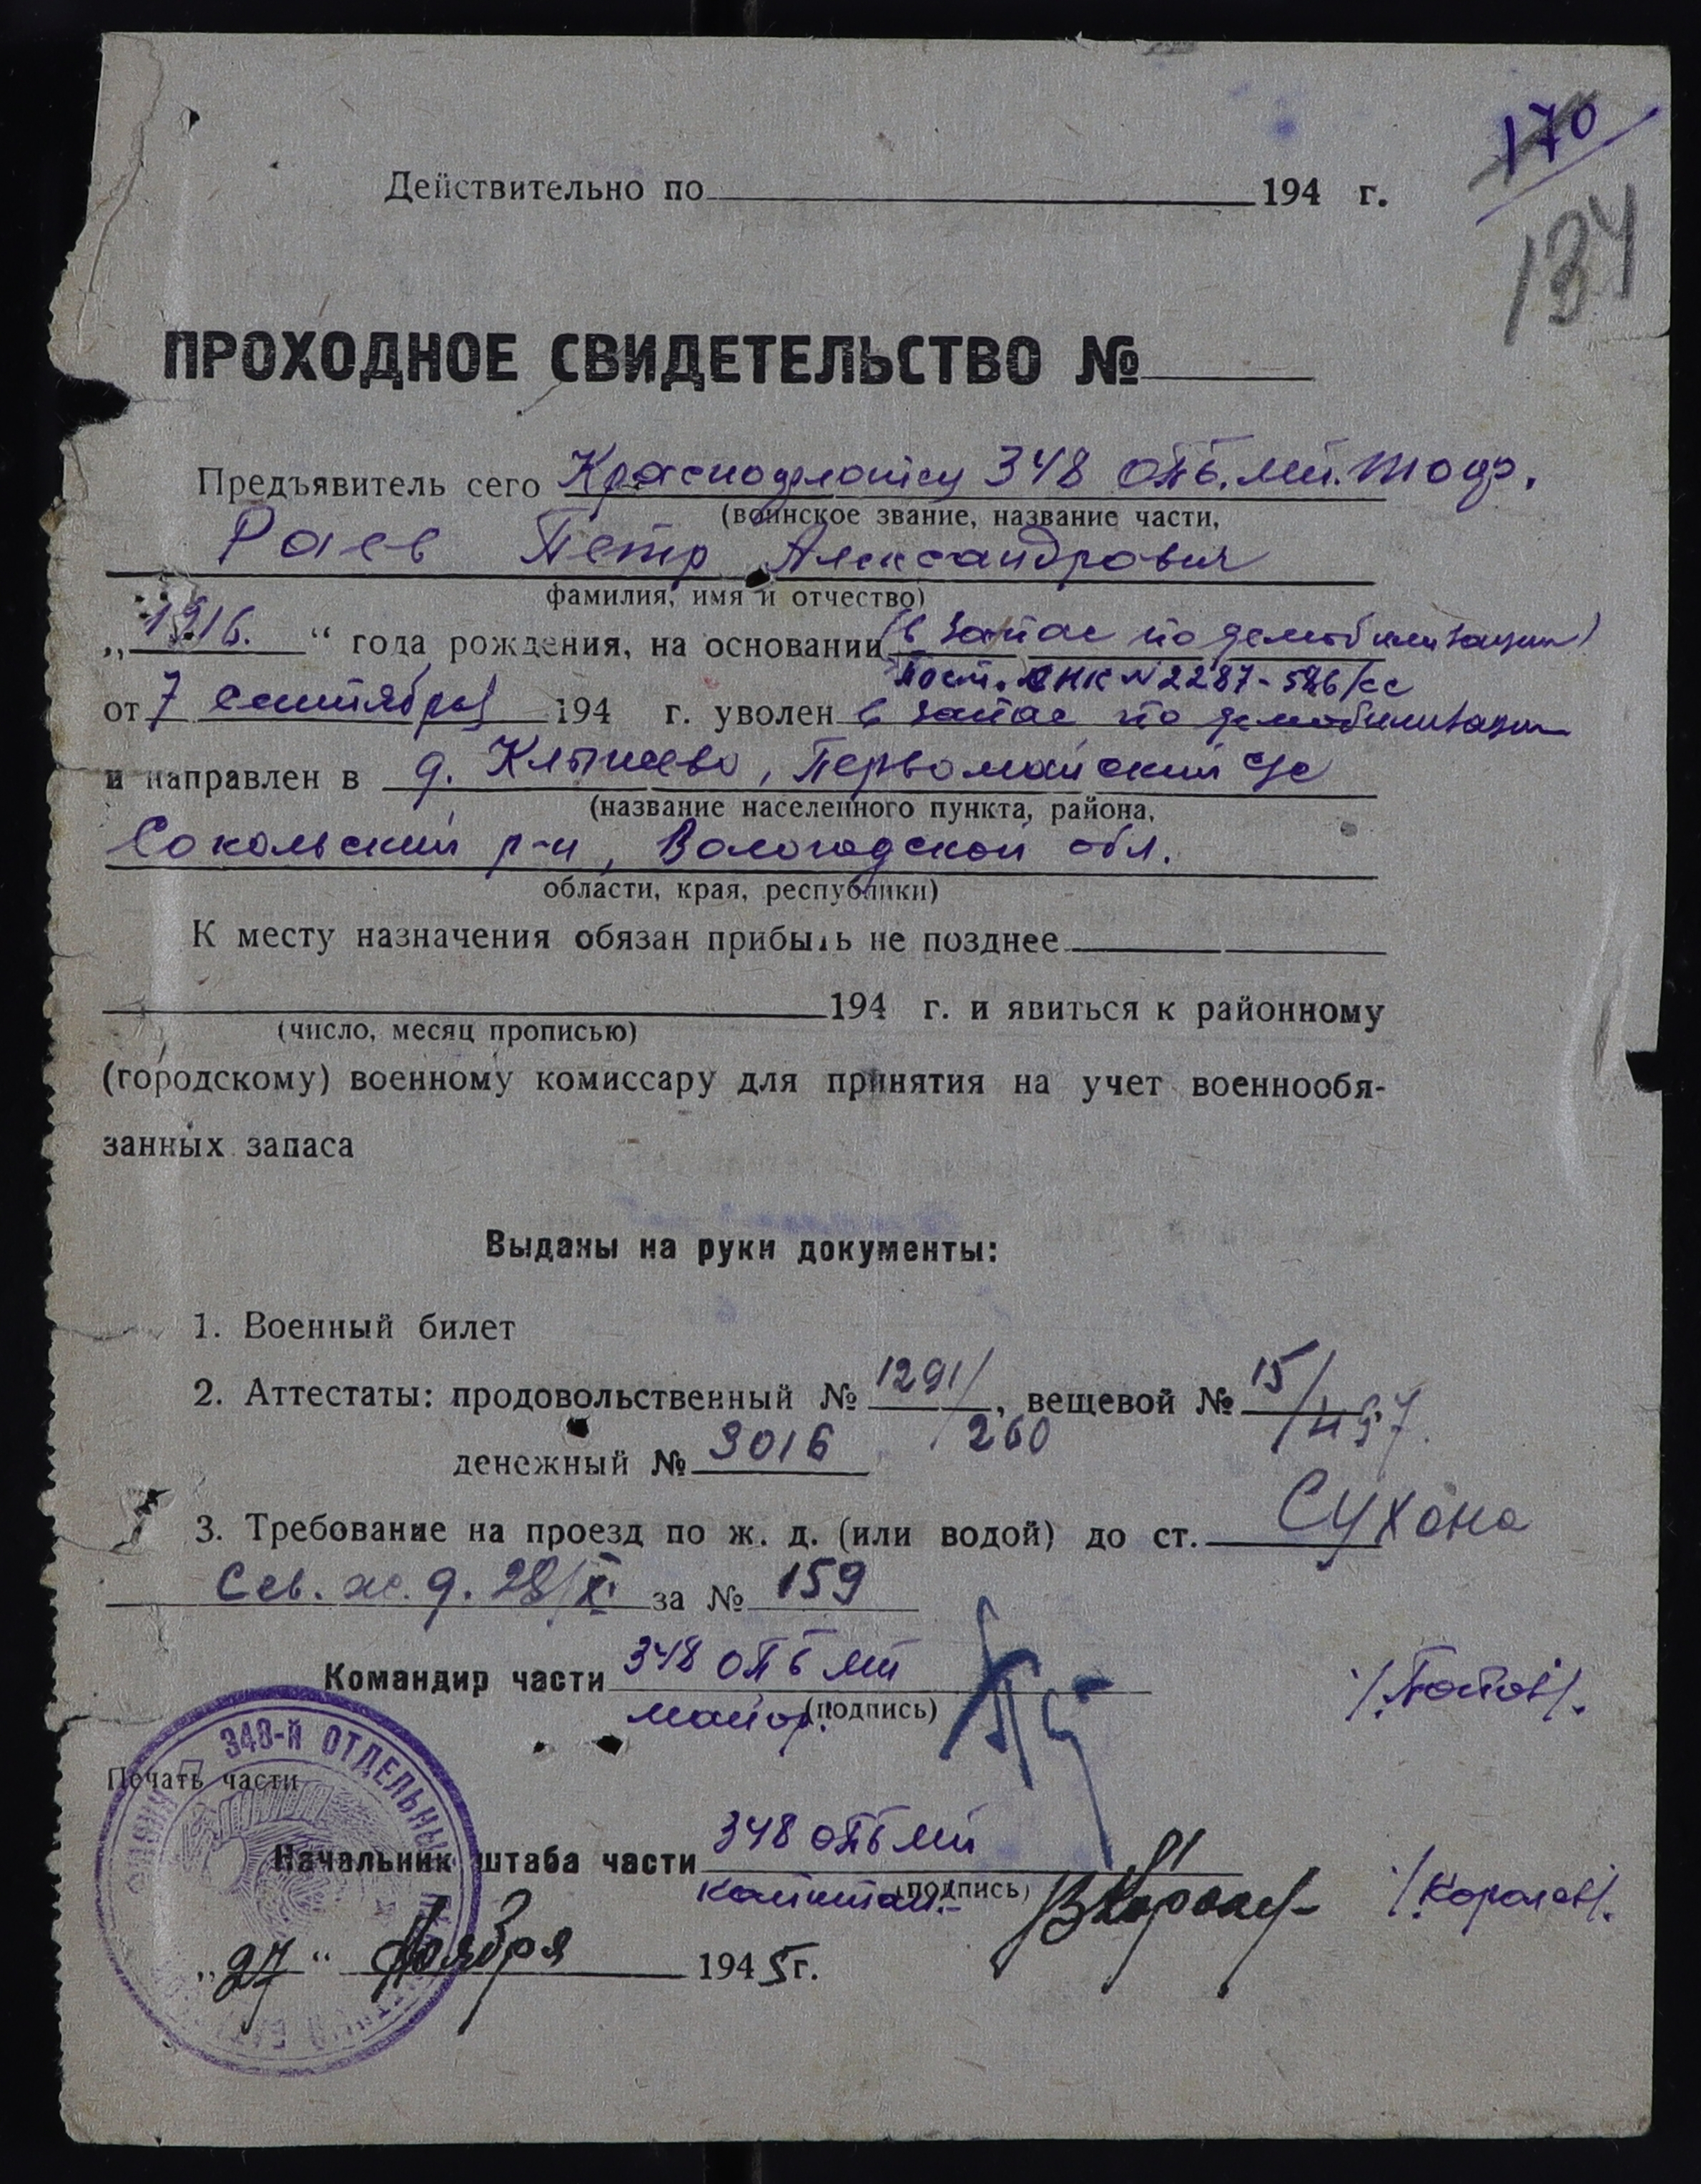 170
134
Действительно по 194 г.
ПРОХОДНОЕ СВИДЕТЕЛЬСТВО №
Предъявитель сего Краснофлотец 348 ОТБ. МП. ТОФ.
(воинское звание, название части,
Раев Петр Александрович
фамилия, имя и отчество)
„1916.“ года рождения, на основании (в запас по демобилизации)
Пост. СНК №2287-586/сс
от 7 сентября 194 г. уволен в запас по демобилизации
и направлен в д. Клышево, Первомайский с/с
(название населенного пункта, района,
Сокольский р-н, Вологодской обл.
области, края, республики)
К месту назначения обязан прибыть не позднее
194 г. и явиться к районному
(число, месяц прописью)
(городскому) военному комиссару для принятия на учет военнообя-
занных запаса
Выданы на руки документы:
1. Военный билет
2. Аттестаты: продовольственный № 1291/260, вещевой № 15/497.
денежный № 3016
3. Требование на проезд по ж. д. (или водой) до ст. Сухона
Сев. ж. д. 28/XI за № 159
Командир части 348 ОТБ МП
майор. (подпись) /Попов/.
348-Й ОТДЕЛЬНЫЙ
Печать части
Начальник штаба части 348 ОТБ МП
капитан.- (подпись) /Королев/.
„27“ Ноября 1945 г.